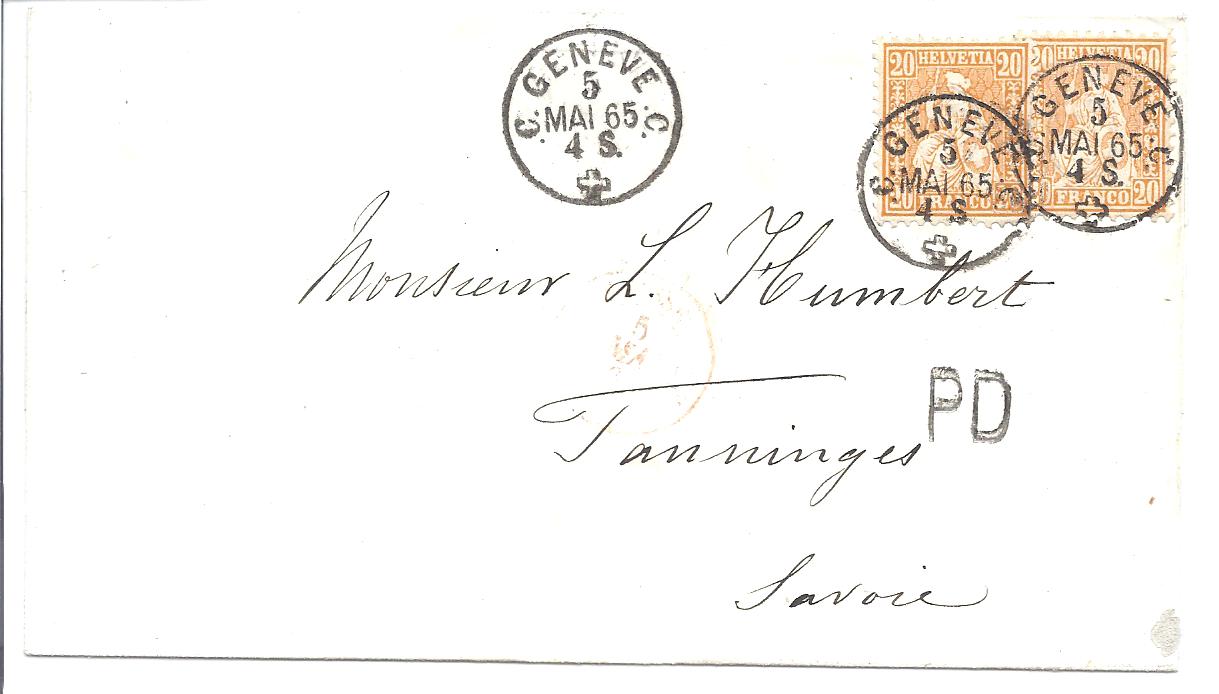 C. GENEVE C.
5
MAI 65.
4 S.
20 HELVETIA 20
20 FRANCO 20
C. GENEVE C.
5
MAI 65.
4 S.
20 HELVETIA 20
20 FRANCO 20
C. GENEVE C.
5
MAI 65.
4 S.
Monsieur L. Humbert
5
PD
Tanninges
Savoie